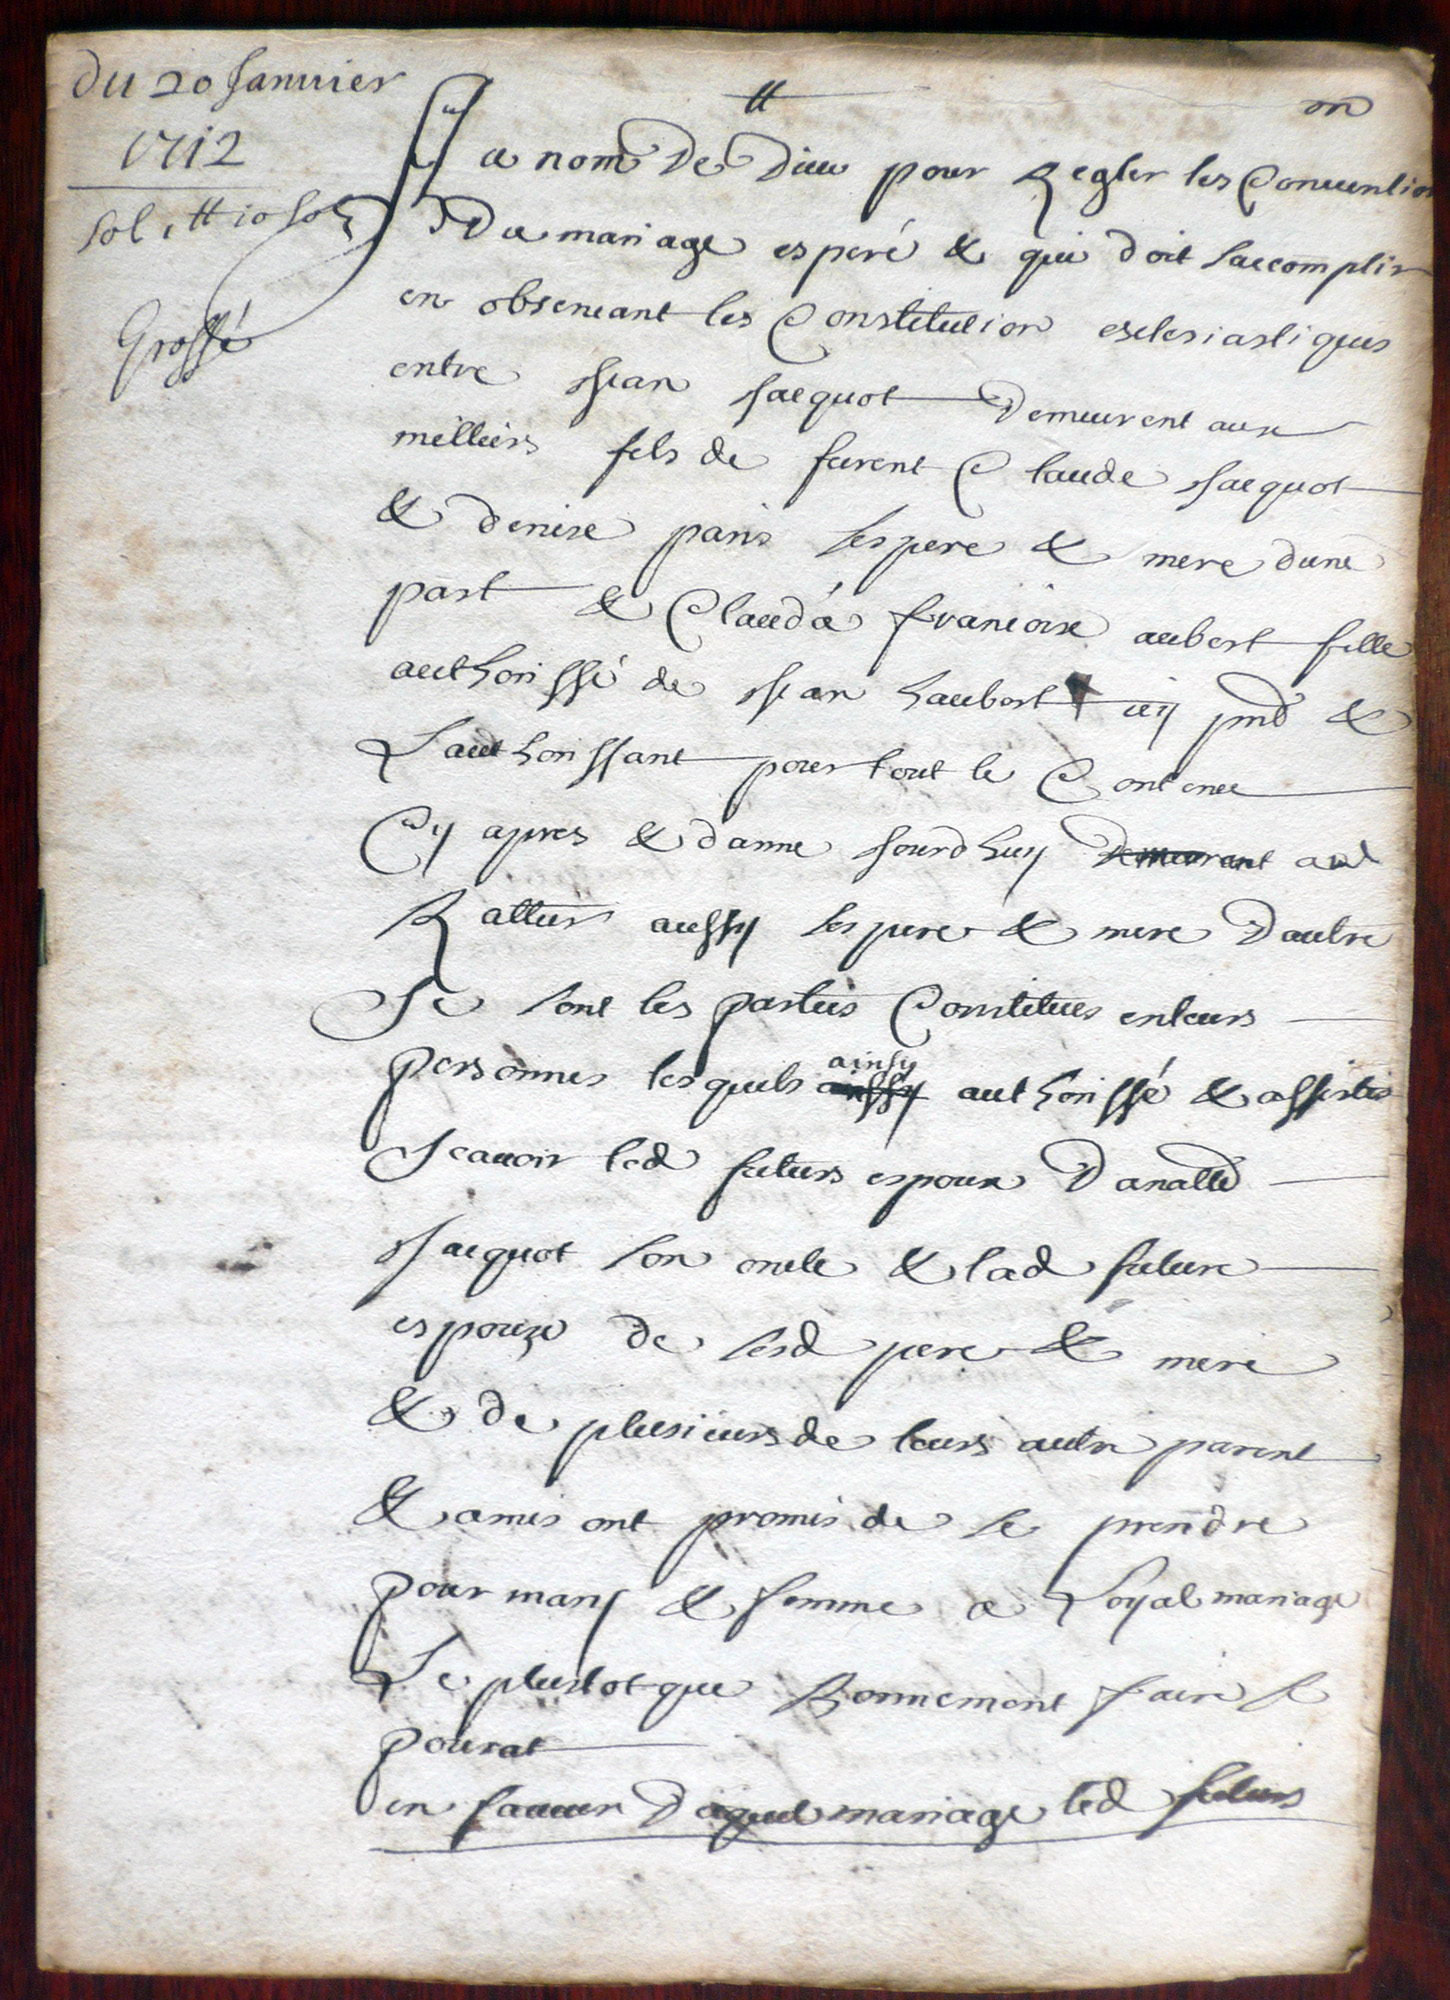 du 20 Janvier
1712
sol 1 tt 10 sols
Grossé
on
Au nom De Dieu pour Regler les Convention
Du mariage esperé & qui doit saccomplir
en observant les Constitution esclesiastiques
entre Jean Jacquot Demeurent aux
milleirs fils de furent Claude Jacquot
& denise paris ses pere & mere dune
part & Clauda francoise aubert fille
authorissé de Jean haubert icy pnt &
Lauthorissant pour tout le Contenu
Cy apres & danne Jourdhuy Demeurant aud
Rattier aussy ses pere & mere Dautre
Se sont les parties Constitues enleurs
personnes lesquels aussy ainsy authorissé & assistés
Scavoir led futurs espoux Danatte
Jacquot son oncle & lad future
espouze de sesd pere & mere
& de plusieurs de leurs autre parent
& amis ont promis de se prendre
pour mary & femme a Loyal mariage
Le plustot que Bonnement faire se
pourat
en faveur Duquel mariage led futurs